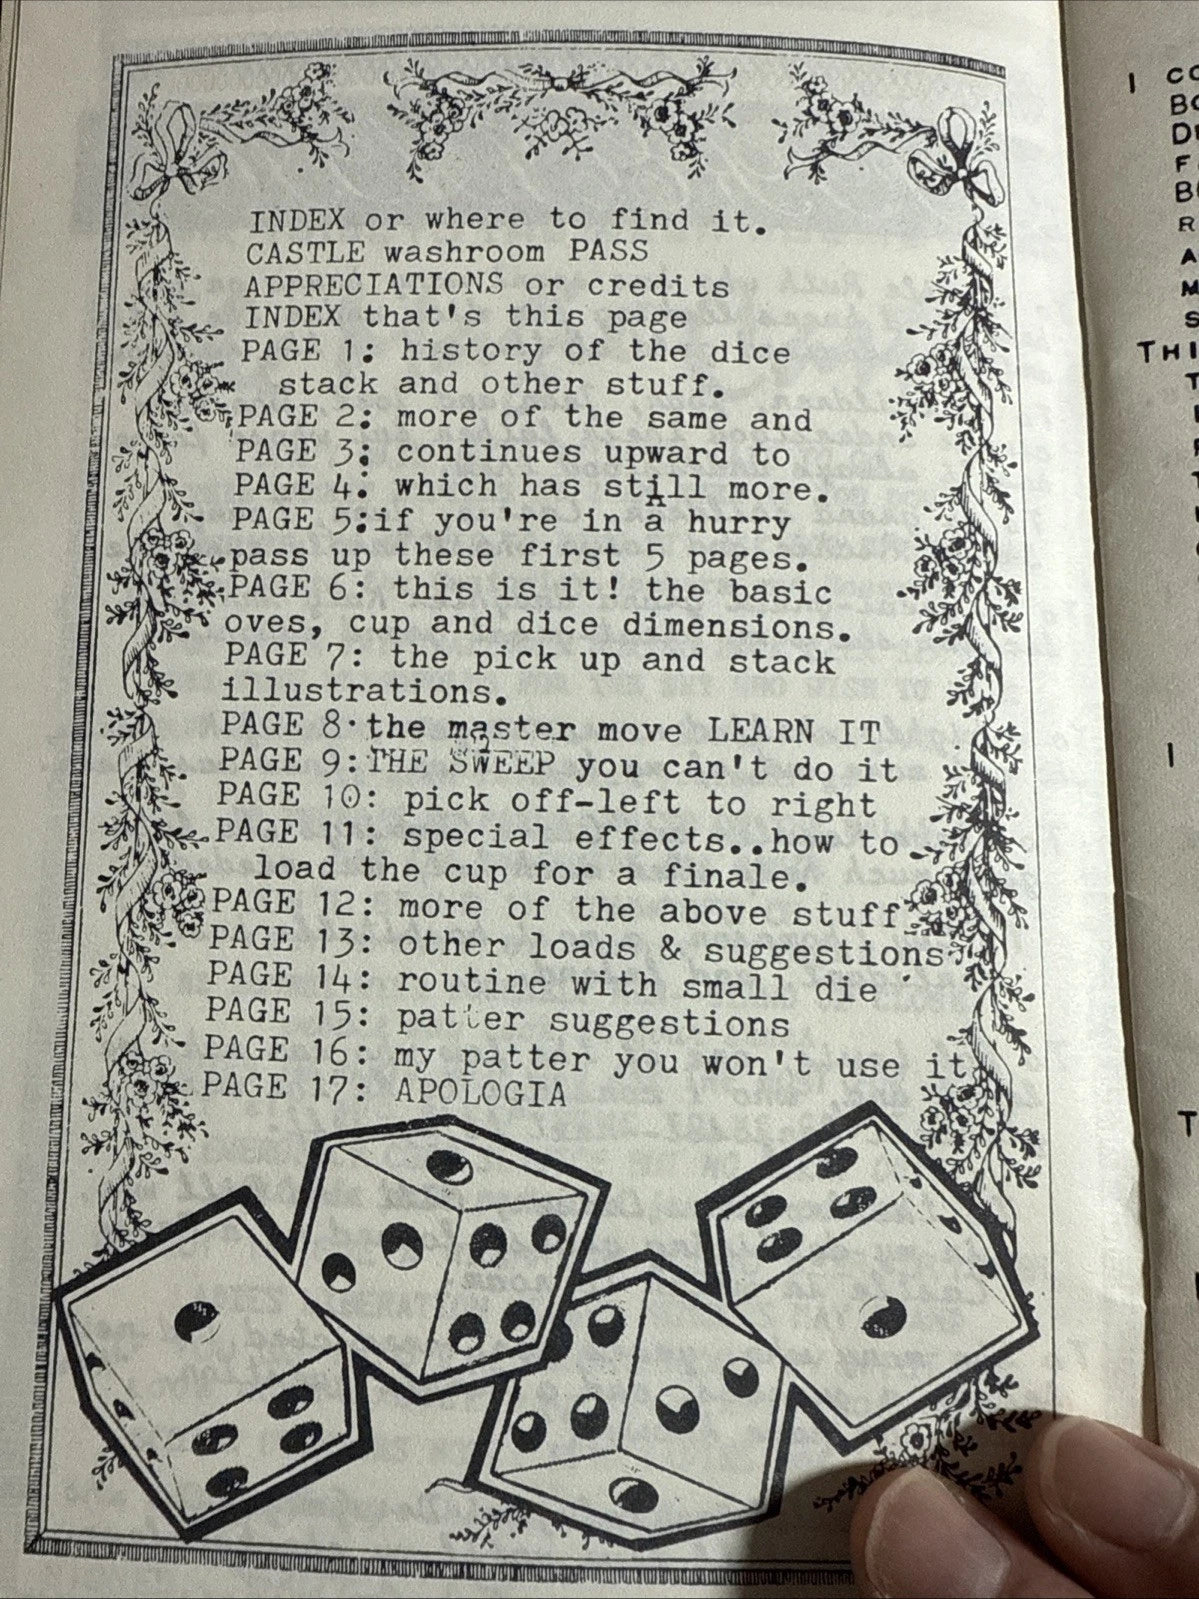 INDEX or where to find it.
CASTLE washroom PASS
APPRECIATIONS or credits
INDEX that's this page
PAGE 1: history of the dice
stack and other stuff.
PAGE 2: more of the same and
PAGE 3: continues upward to
PAGE 4: which has still more.
PAGE 5:if you're in a hurry
pass up these first 5 pages.
PAGE 6: this is it! the basic
oves, cup and dice dimensions.
PAGE 7: the pick up and stack
illustrations.
PAGE 8·the master move LEARN IT
PAGE 9:THE SWEEP you can't do it
PAGE 10: pick off-left to right
PAGE 11: special effects..how to
load the cup for a finale.
PAGE 12: more of the above stuff
PAGE 13: other loads & suggestions
PAGE 14: routine with small die
PAGE 15: patter suggestions
PAGE 16: my patter you won't use it
PAGE 17: APOLOGIA